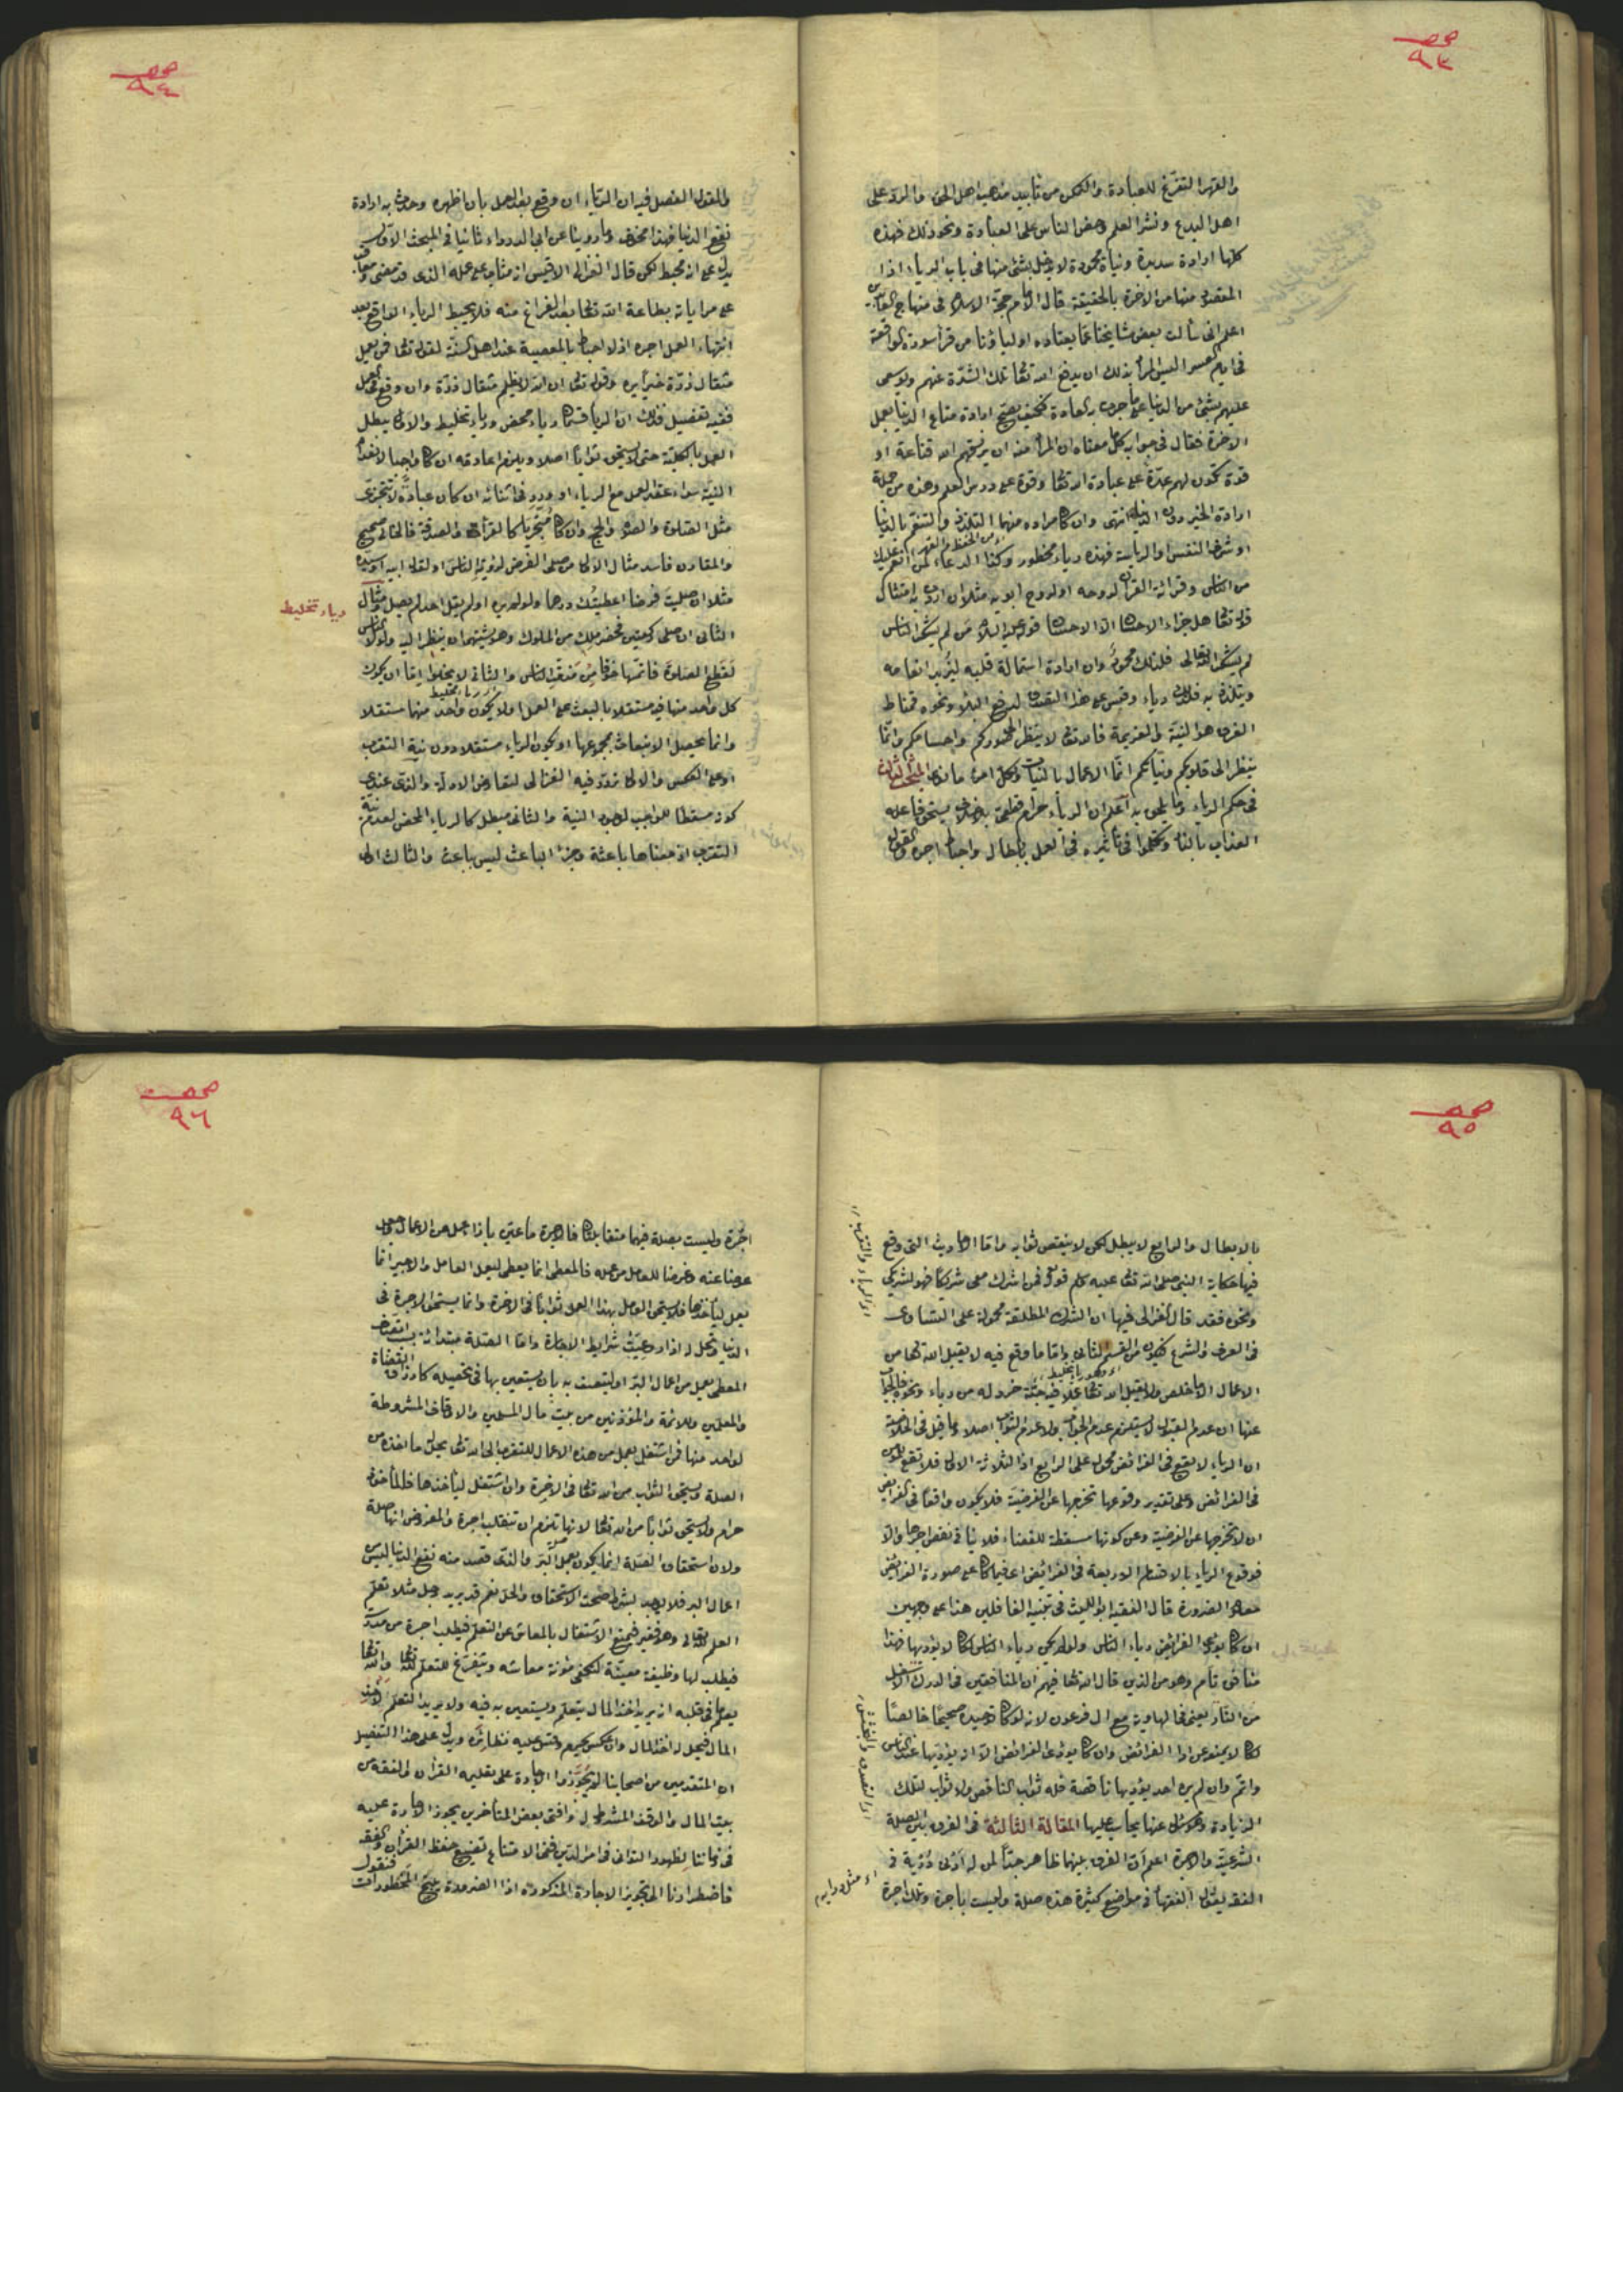 صحـ
٩٣
والقهر التفرّغ للعبادة والتمكن من تأييد مذهب اهل الحق والرد على
اهل البدع ونشر العلم وحض الناس على العبادة ونحو ذلك فهذه
كلها ارادة سديدة ونياة محمودة لا يدخل شئ منها فى باب الرياء اذا
المقصود منها من الاخرة بالحقيقة قال الامام حجة الاسلام فى منهاج العابدين
اعلم انى سألت بعض مشايخنا عما يعتاده اولياؤنا من قرأة سورة الواقعة
فى ايام العسر اليس المراد بذلك ان يدفع الله تعا تلك الشدّة عنهم ويوسع
عليهم بشئ من الدنيا على ما جرت به العادة فكيف يصح ارادة متاع الدنيا بعمل
الاخرة فقال فى جوابه كلاما معناه ان المراد منه ان يرزقهم الله قناعة او
قوة تكون لهم عدّة على عبادة الله تعا وقوة على درس العلم وهذه من جملة
ارادة الخير دون الدنيا انتهى وان كان مراده منهما التلذذ والتنعم بالدنيا
او شره النفس او الرياسة فهذه رياء محظور وكذا الدعاء لمن انعم عليك
من الناس وقرائة القرآن لروحه او لروح ابويه مثلا ان اردت به امتثال
قوله تعا هل جزاء الاحسان الا الاحسان قوله عليه السلام من لم يشكر الناس
لم يشكر الله تعالى فلذلك محمود وان ارادة استمالة قلبه ليزيد انعامه
ويتلذذ به فلذلك رياء وقس على هذا التصدق لدفع البلاء ونحوه فمناط
الفرق هو النية والعزيمة فالله تعا لا ينظر الى صوركم واحسامكم وانما
ينظر الى قلوبكم ونياتكم انما الاعمال بالنيات ولكل امرئ ما نوى المبحث الثالث
فى حكم الرياء وما يلحق به اعلم ان الرياء حرام قطعى بلا خلاف يستحق فاعله
العذاب بالنار وتكلموا فى تأثيره فى العمل بابطال واحباط اجره والقول
صحـ
٩٤
والقول المفصل فيه ان الرياء ان وقع بعد العمل بان اظهره وحدث به ارادة
نفع الدنيا فهذا مخوف وما روينا عن ابى الدرداء ثانيا فى المبحث الاول
يدل على انه محبط لكن قال الغزالى الاقيس انه مثاب على عمله الذى قد مضى ومعاقب
على مراياته بطاعة الله تعا بعد الفراغ منه فلا يحبط الرياء الواقع بعد
انتهاء العمل اجره اذ لا احباط بالمعصية عند اهل السنة لقوله تعا فمن يعمل
مثقال ذرّة خيرا يره وقوله تعا ان الله لا يظلم مثقال ذرّة وان وقع فى العمل
ففيه تفصيل وذلك ان الرياء قسمان رياء محض ورياء تخليط والاول يبطل
العمل بالكلية حتى لا يستحق ثوابا اصلا ويلزم اعادته ان كان واجبا لانعدام
النية سواء عقد العمل مع الرياء او ورد فى اثنائه ان كان عبادة لا تتجزى
مثل الصلوة والصوم والحج وان كان متجزيا كالقرأة والصدقة فالخالى صحيح
والمقارن فاسد مثال الاول من صلى الفرض لرؤية الناس او لقول ابيه او سيده
مثلا ان صليت فرضا اعطيتك درهما ولو لم يره او لم يقل احد لم يصل ومثال
رياء تخليط
الثانى ان صلى ركعتين فحضر ملك من الملوك وهو يشتهى ان ينظر اليه ولولا الناس
لقطع الصلوة فاتمّها خوفا من مذمّة الناس والثانى لا يخلوا اما ان يكون
كل واحد منها فيه مستقلا بالبعث على العمل او لا يكون واحد منهما مستقلا
وانما يحصل الانبعاث بمجموعها او يكون الرياء مستقلا دون نية التقرب
او على العكس والاول تردد فيه الغزالى لتعارض الادلة والذى عندى
كونه مسقطا للواجب لوجود النية والثانى مبطل كالرياء المحض لعدم نية
التقرب اذ معناها باعثة وجزء الباعث ليس بباعث والثالث اولى
صحـ
٩٥
بالابطال والرابع لا يبطل لكن لا ينقص ثوابه واما الاحاديث التى وقع
فيها حكاية النبى صلى الله تعا عليه وسلم قوله فمن اشرك معى شريكا فهو لشريكى
ونحوه فقد قال الغزالى فيها ان الشرك المطلقة محمولة على التساوى
فى العرف والشرع فيكون من القسم الثانى واما ما وقع فيه لا يقبل الله تعا من
الاعمال الا ما خلص ولا يقبل الله تعا عملا فيه حبّة خردلة من رياء ونحوه فالجواب
عنها ان عدم القبول لا يستلزم عدم الجواز ولا عدم الثواب اصلا وما قيل فى الخلاصة
ان الرياء لا يقع فى الفرائض محمول على الرابع اذ الثلاثة الاول فلا تقع
فى الفرائض وعلى تقدير وقوعها تخرجها عن الفرضية فلا يكون واقعا فى الفرايض
ان لا تخرجها عن الفرضية وعن كونها مسقطة للقضاء فلا ينافى نقص اجرها والّا
فوقوع الرياء بالاقسام الاربعة فى الفرائض اعنى ما كان على صورة الفرائض
معلوم الضرورة قال الفقيه ابو الليث فى تنبيه الغافلين هذا على وجهين
ان كان يؤدى الفرائض رياء الناس ولو لم يكن رياء الناس لكان لا يؤديها فهذا
منافق تام وهو من الذين قال الله تعا فيهم ان المنافقين فى الدرك الاسفل
من النار يعنى فى الهاوية مع ال فرعون لانه لو كان توحيده صحيحًا خالصًا
لكان لا يمنعه عن اداء الفرائض وان كان يؤدى الفرائض الا انه يؤديها عند الناس
واتم وان لم يره احد يؤديها ناقصة فله ثواب الناقص ولا ثواب لتلك
الزيادة وهو سئول عنها يحاسب عليها المقالة الثالثة فى الفرق بين الصلة
الشرعية والاجرة اعلم ان الفرق بينهما ظاهر جدّا لمن له ادنى دُرْبة فى
الفقه يقول الفقهاء فى مواضع كثيرة هذه صلة وليست باجرة وتلك اجرة
صحـ
٩٦
اجرة وليست بصلة فهما متقابلان فالاجرة ما عيّن بازاء عمل من الاعمال وجعل
عوضا عنه وغرضا للعامل من عمله فالمعطى انما يعطى ليعمل العامل والاجير انما
يعمل ليأخذها فلا يستحق العامل بهذا العمل ثوابا فى الاخرة وانما يستحق الاجرة فى
الدنيا وتحل له اذا روعيت شرايط الاجارة واما الصلة مبتدأة
المعطى لمن يعمل من اعمال البر او ليتصف به بان يستعين بها فى تحصيله كارزاق القضاة
والمعلمين والائمة والمؤذنين من بيت مال المسلمين والاوقاف المشروطة
لواحد منها فمن اشتغل بعمل من هذه الاعمال للتقرب الى الله تعا يحل ما اخذه من
الصلة ويستحق الثواب من الله تعا فى الاخرة وان اشتغل ليأخذها فالمأخوذ
حرام ولا يستحق ثوابا من الله تعا لانها تلزم ان تنقلب اجرة والمفروض انها صلة
ولان استحقاق الصلة انما يكون بعمل البر والذى قصد منه نفع الدنيا ليس من
اعمال البر فلا يوجد شرط صحت الاستحقاق والحل نعم قد يريد رجل مثلا تعلّم
العلم لله تعالى وهو فقير فيمنع الاشتغال بالمعاش عن التعلم فيطلب اجرة من
فيطلب لها وظيفة معينة لتكفى مؤنة معاشه ويتفرغ للتعلم لله تعا والله تعا
يعلم ما فى قلبه انه يريد اخذ المال ليتعلم ويستعين به فيه ولا يريد التعلم لاخذ
المال فيحل له اخذ المال وان عكس يحرم وقس عليه نظائره ويدل على هذا التفصيل
ان المتقدمين من اصحابنا لم يجوّزوا الاجارة على تعليم القرآن والفقه من
بيت المال والوقف المشروط له وافتى بعض المتأخرين بجواز الاجارة عليه
فى زماننا لظهور التوانى فى امر الدين ففى الامتناع تضييع حفظ القرآن والفقه
فاضطررنا الى تجويز الاجارة المذكورة اذ الضرورة تبيح المحظورات فنقول